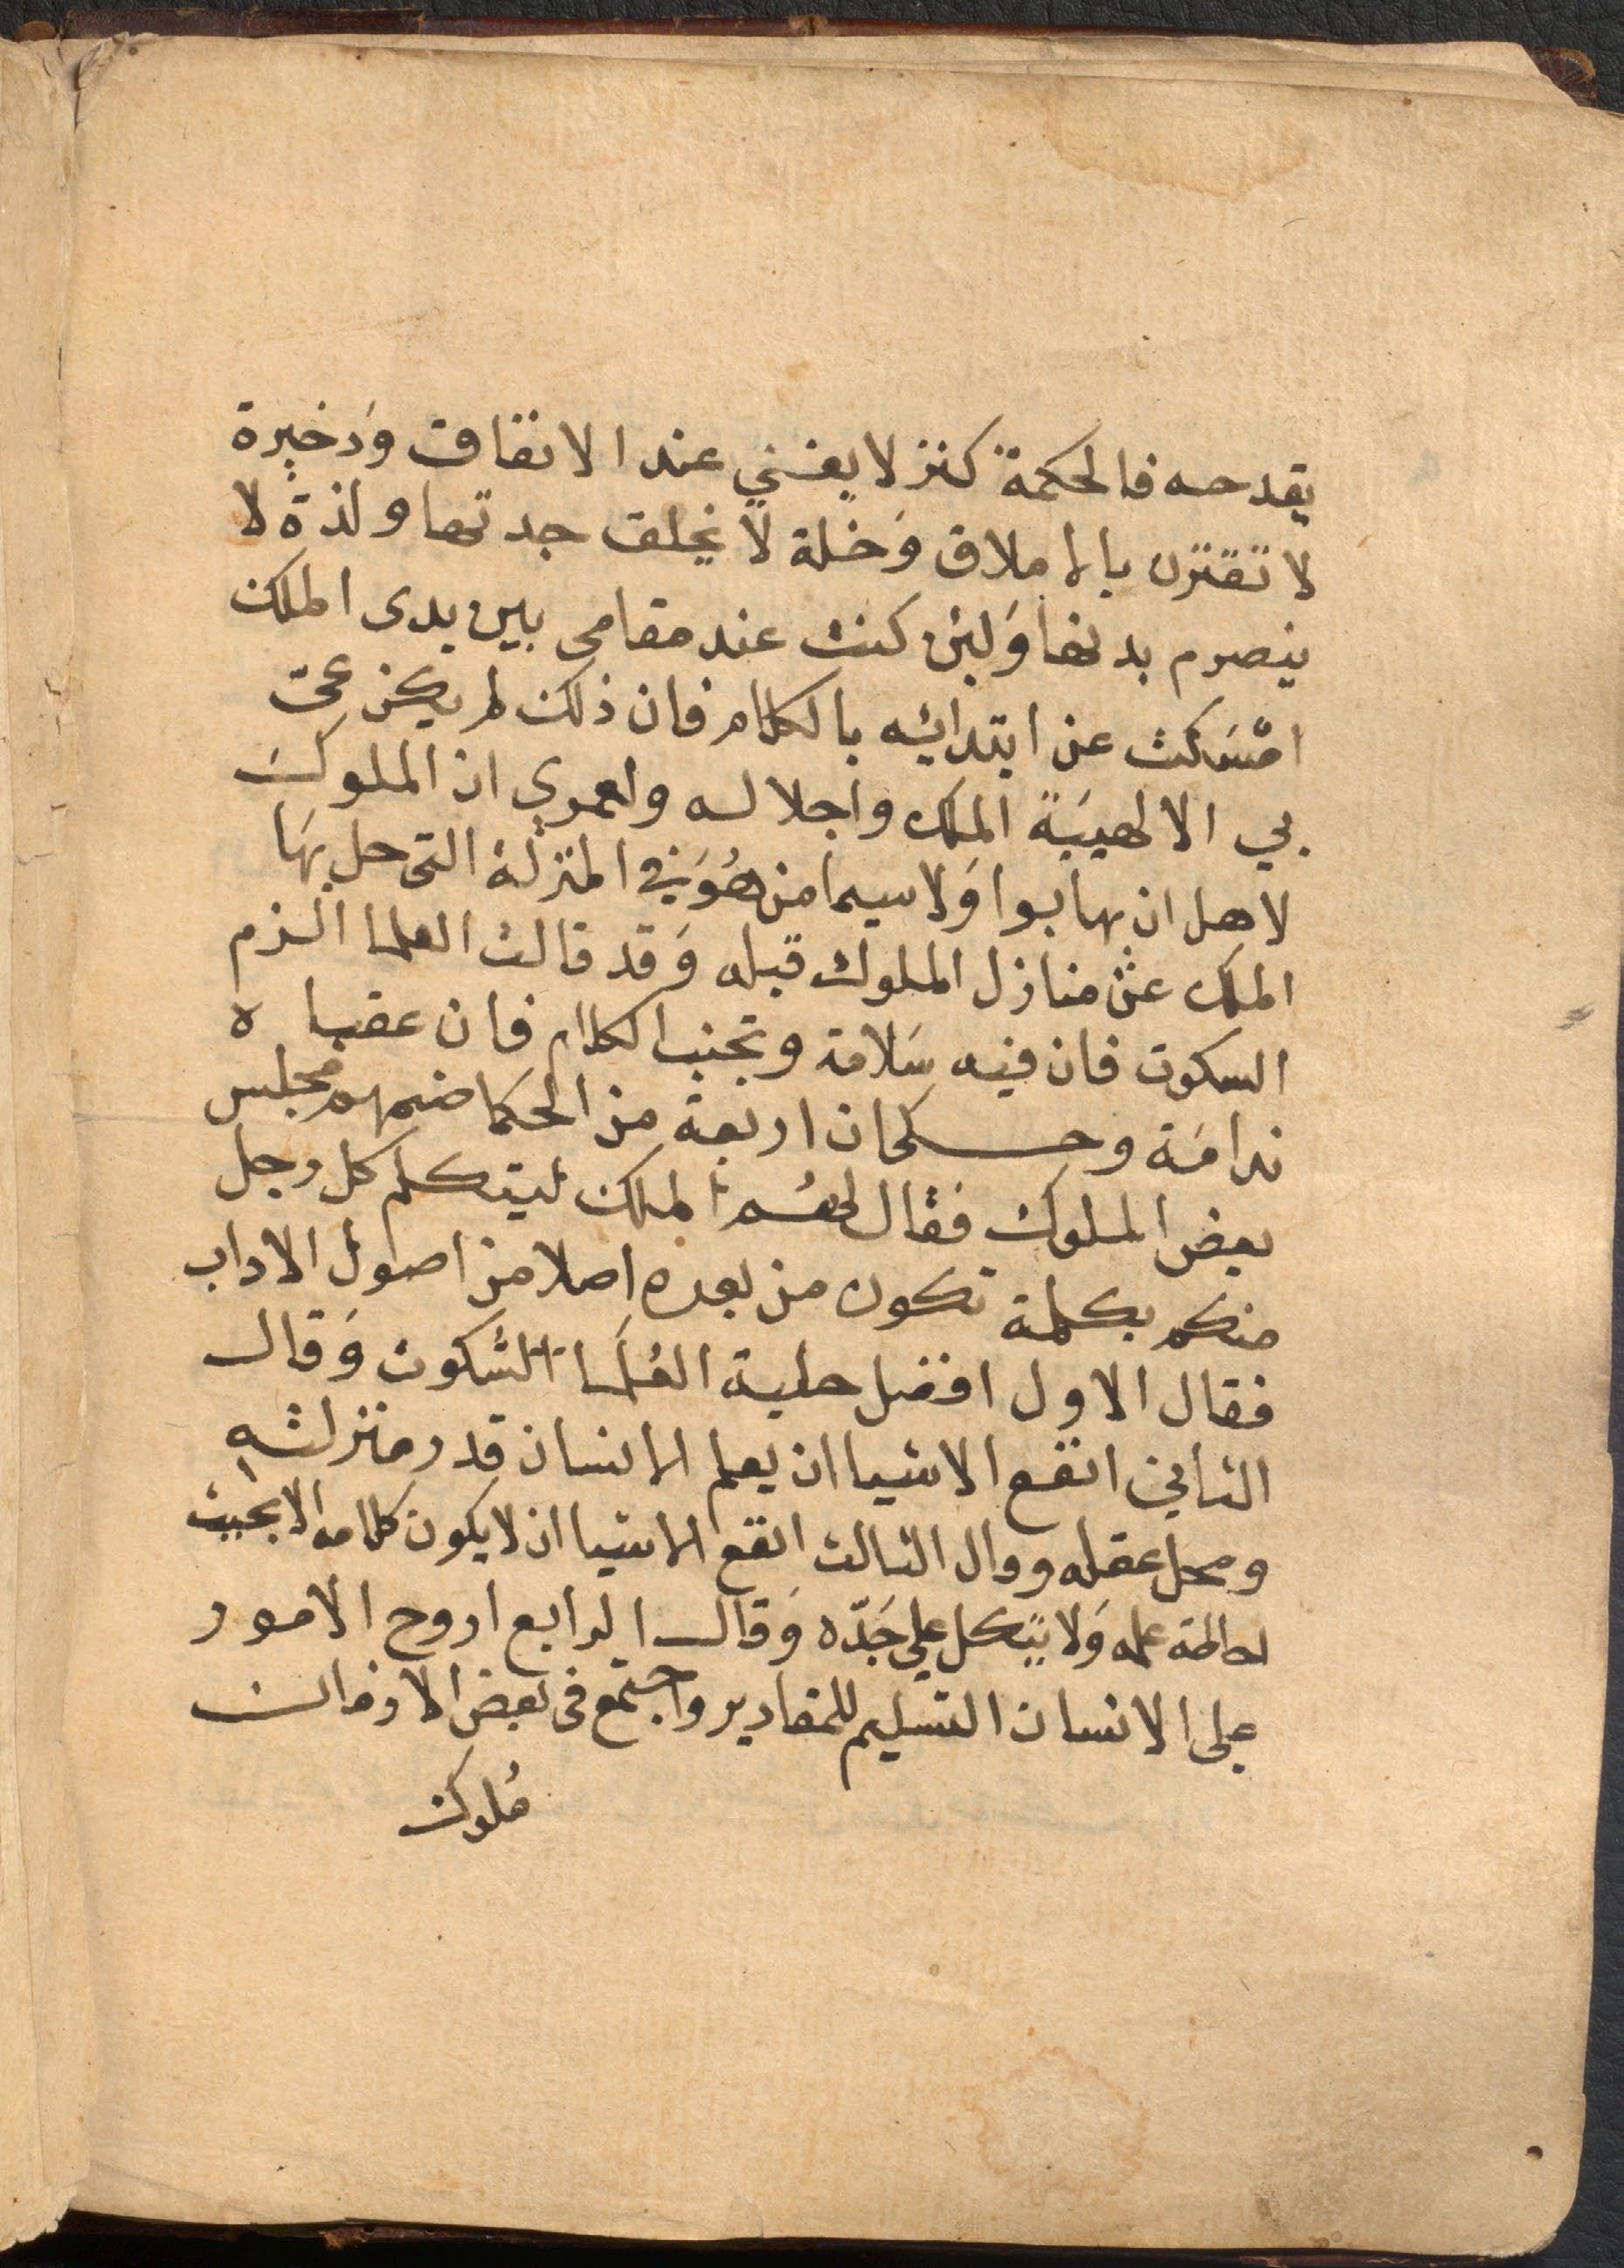 يقدحه فالحكمة كنز لا يفني عند الانفاق وذخيرة
لا تقترن بالاملاق وَحلة لا يخلق جدتها ولذة لا
ينصرم بدنها وَلئن كنت عند مقامي بين يدى الملك
امْسَكت عن ابتدائيه بالكلام فان ذلك لم يكن عيّ
بي الا لهيبَة الملك واجلاله ولعمري ان الملوك
لاهل ان يهابوا وَلا سيما من هُوَ في المنزلة التي حل بهَا
الملك عن منازل الملوك قبله وَقد قالت العلما الزم
السكوت فان فيه سَلامة وتجنب الكلام فان عقباه
ندامَة وحكى ان اربعة من الحكما ضمهم مجلس
بعض الملوك فقال لهُم الملك ليتكلم كل رجل
منكم بكلمة تكون من بعده اصلا من اصول الاداب
فقال الاول افضل حلية العُلَما السُّكوت وَقال
الثاني انفع الاشيا ان يعلم الانسان قدر منزلته
ومحل عقله وقال الثالث انفع الاشيا ان لا يكون كلامه الا بحيث
عمله وَلا يتكل علي جَدّه وَقال الرابع اروح الامور
على الانسان التسليم للمقادير واجتمع فى بعض الازمان
مُلوك